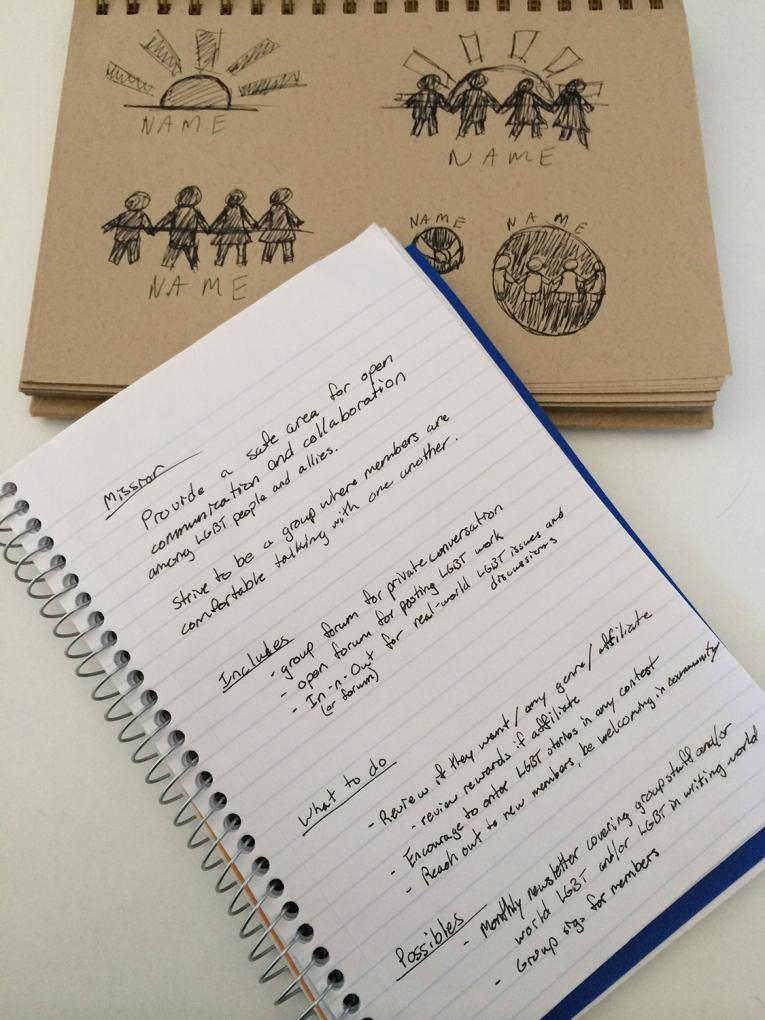 NAME
NAME
NAME
NAME
NAME
Mission
Provide a safe area for open
communication and collaboration
among LGBT people and allies.
Strive to be a group where members are
comfortable talking with one another.
Includes
- group forum for private conversation
- open forum for posting LGBT work
- In-n-Out for real-world LGBT issues and
(or forum) discussions
What to do
- Review if they want/any genre/affiliate
- review rewards if affiliate
- Encourage to enter LGBT stories in any contest
- Reach out to new members, be welcoming in community
Possibles
- Monthly newsletter covering group stuff and/or
world LGBT and/or LGBT in writing world
- Group sigs for members